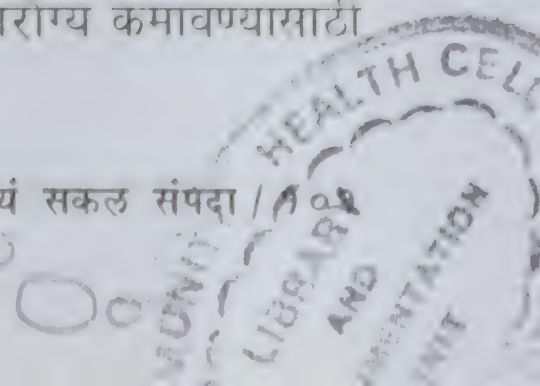 रोग्य कमावण्यासाठी
यं सकल संपदा /
HEALTH CELL
LIBRARY
AND